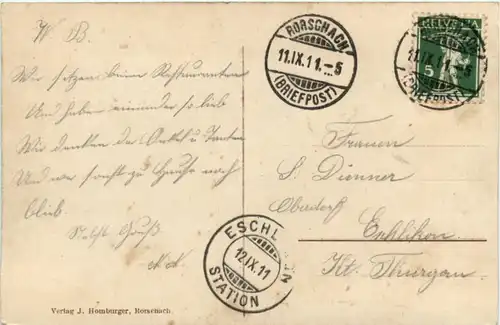 W. B.
Wir sitzen beim Restauranten
Und haben einander so lieb
Wir denken der Onkel u. Tanten
Und wer sonst zu Hause noch
blieb.
Nebst Gruß
N. N.
RORSCHACH
11.IX.11.-5
(BRIEFPOST)
HELVETIA
5
RORSCHACH
11.IX.11.-5
(BRIEFPOST)
Frauen
S. Dienner
Oberdorf
Eschlikon
Kt. Thurgau
ESCHLIKON
12.IX.11
STATION
Verlag J. Homburger, Rorschach